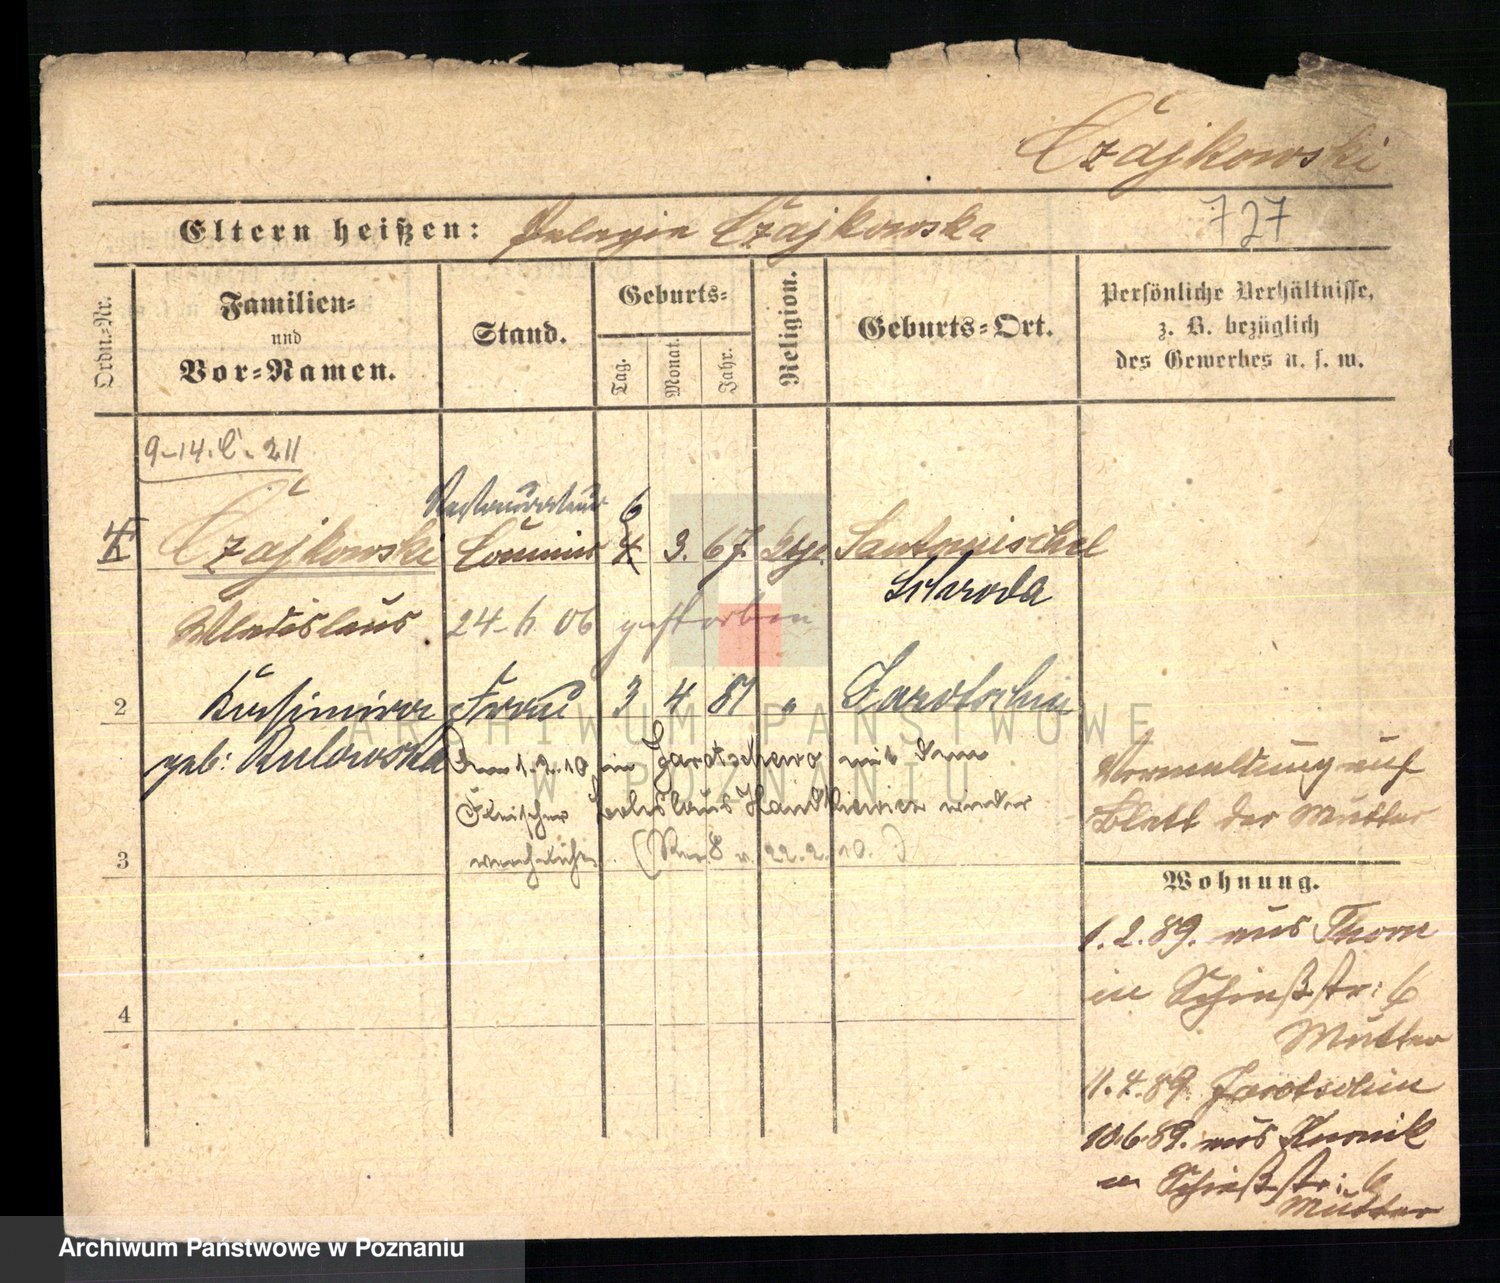 Czajkowski
Eltern heißen: Pelagia Czajkowska 727
Ordn.-Nr.
Familien-
und
Vor-Namen.
Stand.
Geburts-
Tag.
Monat.
Jahr.
Religion.
Geburts-Ort.
Persönliche Verhältnisse,
z. B. bezüglich
des Gewerbes u. s. w.
9-14. C. 211
Restaurateur 6
Czajkowski Commis 4 3. 67. Santomischel
Schroda
Wladislaus 24. 06 gestorben
2 Kasimira Frau 3 4 81 " Jarotschin
geb: Rulowska Am 1.2.10 in Jarotschewo mit dem
Fleischer Boleslaus Handkiewicz wieder
3 verehelicht. ( 8 v. 22.2.10.)
Vermaldung auf
Blatt der Mutter
Wohnung.
1.2.89. aus Thorn
in Schießstr: 6
Mutter
4
1.4.89. Jarotschin
10.6.89. aus Kurnik
in Schießstr: 6
Mutter
ARCHIWUM PAŃSTWOWE
W POZNANIU
Archiwum Państwowe w Poznaniu